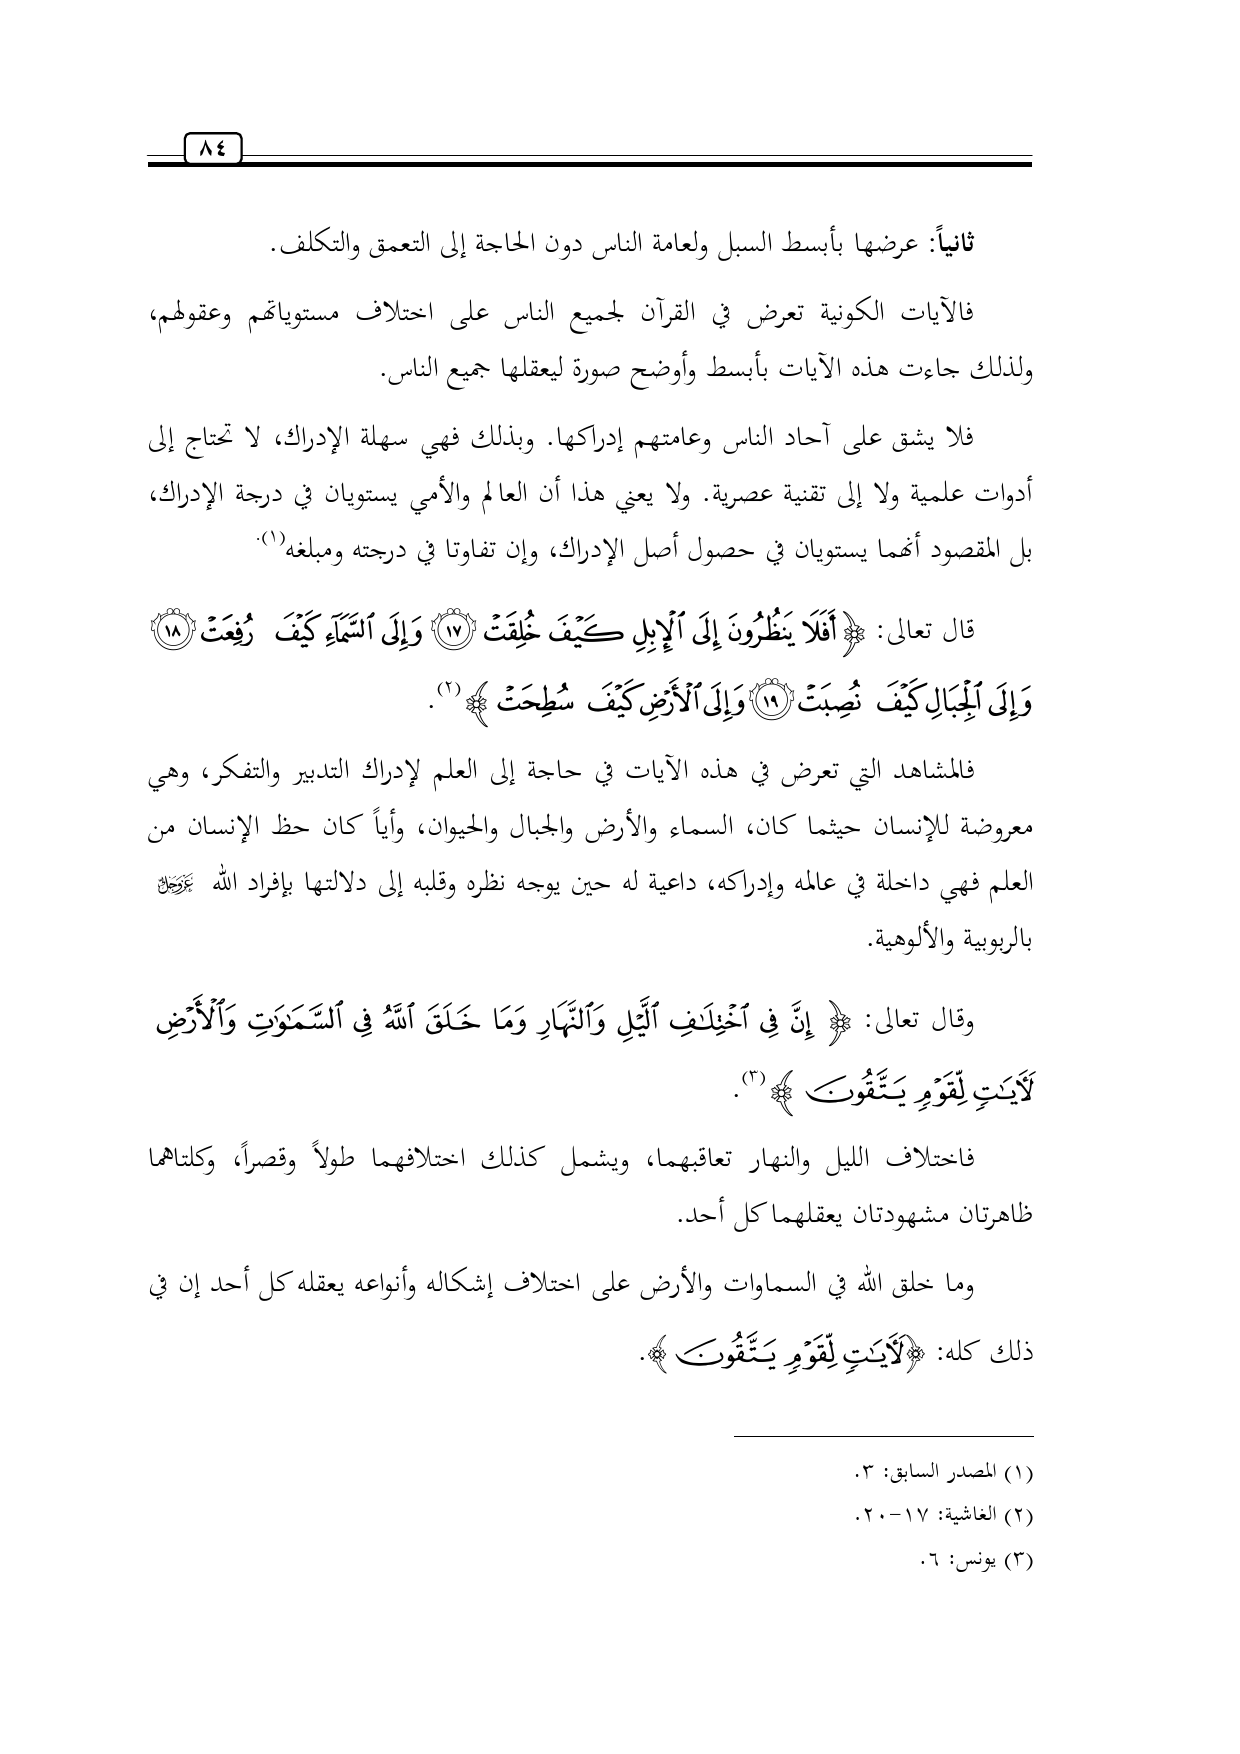 ٨٤
ثانياً: عرضها بأبسط السبل ولعامة الناس دون الحاجة إلى التعمق والتكلف.
فالآيات الكونية تعرض في القرآن لجميع الناس على اختلاف مستوياتهم وعقولهم،
ولذلك جاءت هذه الآيات بأبسط وأوضح صورة ليعقلها جميع الناس.
فلا يشق على آحاد الناس وعامتهم إدراكها. وبذلك فهي سهلة الإدراك، لا تحتاج إلى
أدوات علمية ولا إلى تقنية عصرية. ولا يعني هذا أن العالم والأمي يستويان في درجة الإدراك،
بل المقصود أنهما يستويان في حصول أصل الإدراك، وإن تفاوتا في درجته ومبلغه(١).
قال تعالى: ﴿أَفَلَا يَنظُرُونَ إِلَى ٱلْإِبِلِ كَيْفَ خُلِقَتْ ١٧ وَإِلَى ٱلسَّمَآءِ كَيْفَ رُفِعَتْ ١٨
وَإِلَى ٱلْجِبَالِ كَيْفَ نُصِبَتْ ١٩ وَإِلَى ٱلْأَرْضِ كَيْفَ سُطِحَتْ﴾(٢).
فالمشاهد التي تعرض في هذه الآيات في حاجة إلى العلم لإدراك التدبير والتفكر، وهي
معروضة للإنسان حيثما كان، السماء والأرض والجبال والحيوان، وأياً كان حظ الإنسان من
العلم فهي داخلة في عالمه وإدراكه، داعية له حين يوجه نظره وقلبه إلى دلالتها بإفراد الله عز وجل
بالربوبية والألوهية.
وقال تعالى: ﴿إِنَّ فِى ٱخْتِلَـٰفِ ٱلَّيْلِ وَٱلنَّهَارِ وَمَا خَلَقَ ٱللَّهُ فِى ٱلسَّمَـٰوَٰتِ وَٱلْأَرْضِ
لَـَٔايَـٰتٍ لِّقَوْمٍ يَتَّقُونَ﴾(٣).
فاختلاف الليل والنهار تعاقبهما، ويشمل كذلك اختلافهما طولاً وقصراً، وكلتاهما
ظاهرتان مشهودتان يعقلهما كل أحد.
وما خلق الله في السماوات والأرض على اختلاف إشكاله وأنواعه يعقله كل أحد إن في
ذلك كله: ﴿لَـَٔايَـٰتٍ لِّقَوْمٍ يَتَّقُونَ﴾.
(١) المصدر السابق: ٣.
(٢) الغاشية: ١٧-٢٠.
(٣) يونس: ٦.